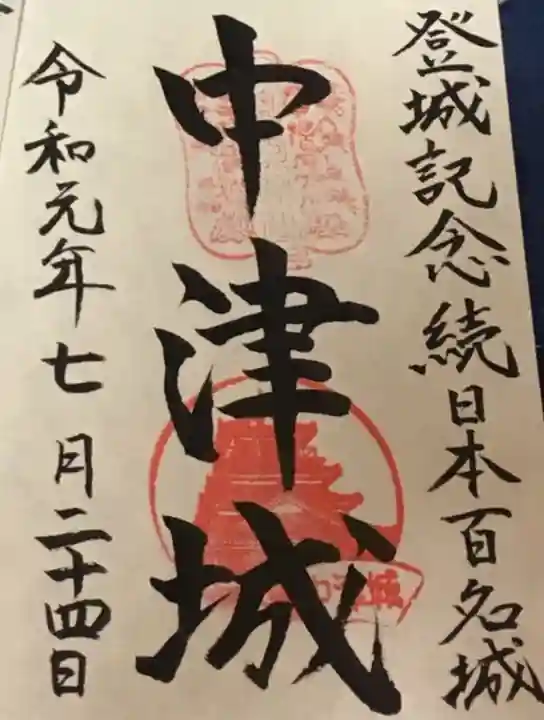 登城記念続日本百名城
中津城
令和元年七月二十四日